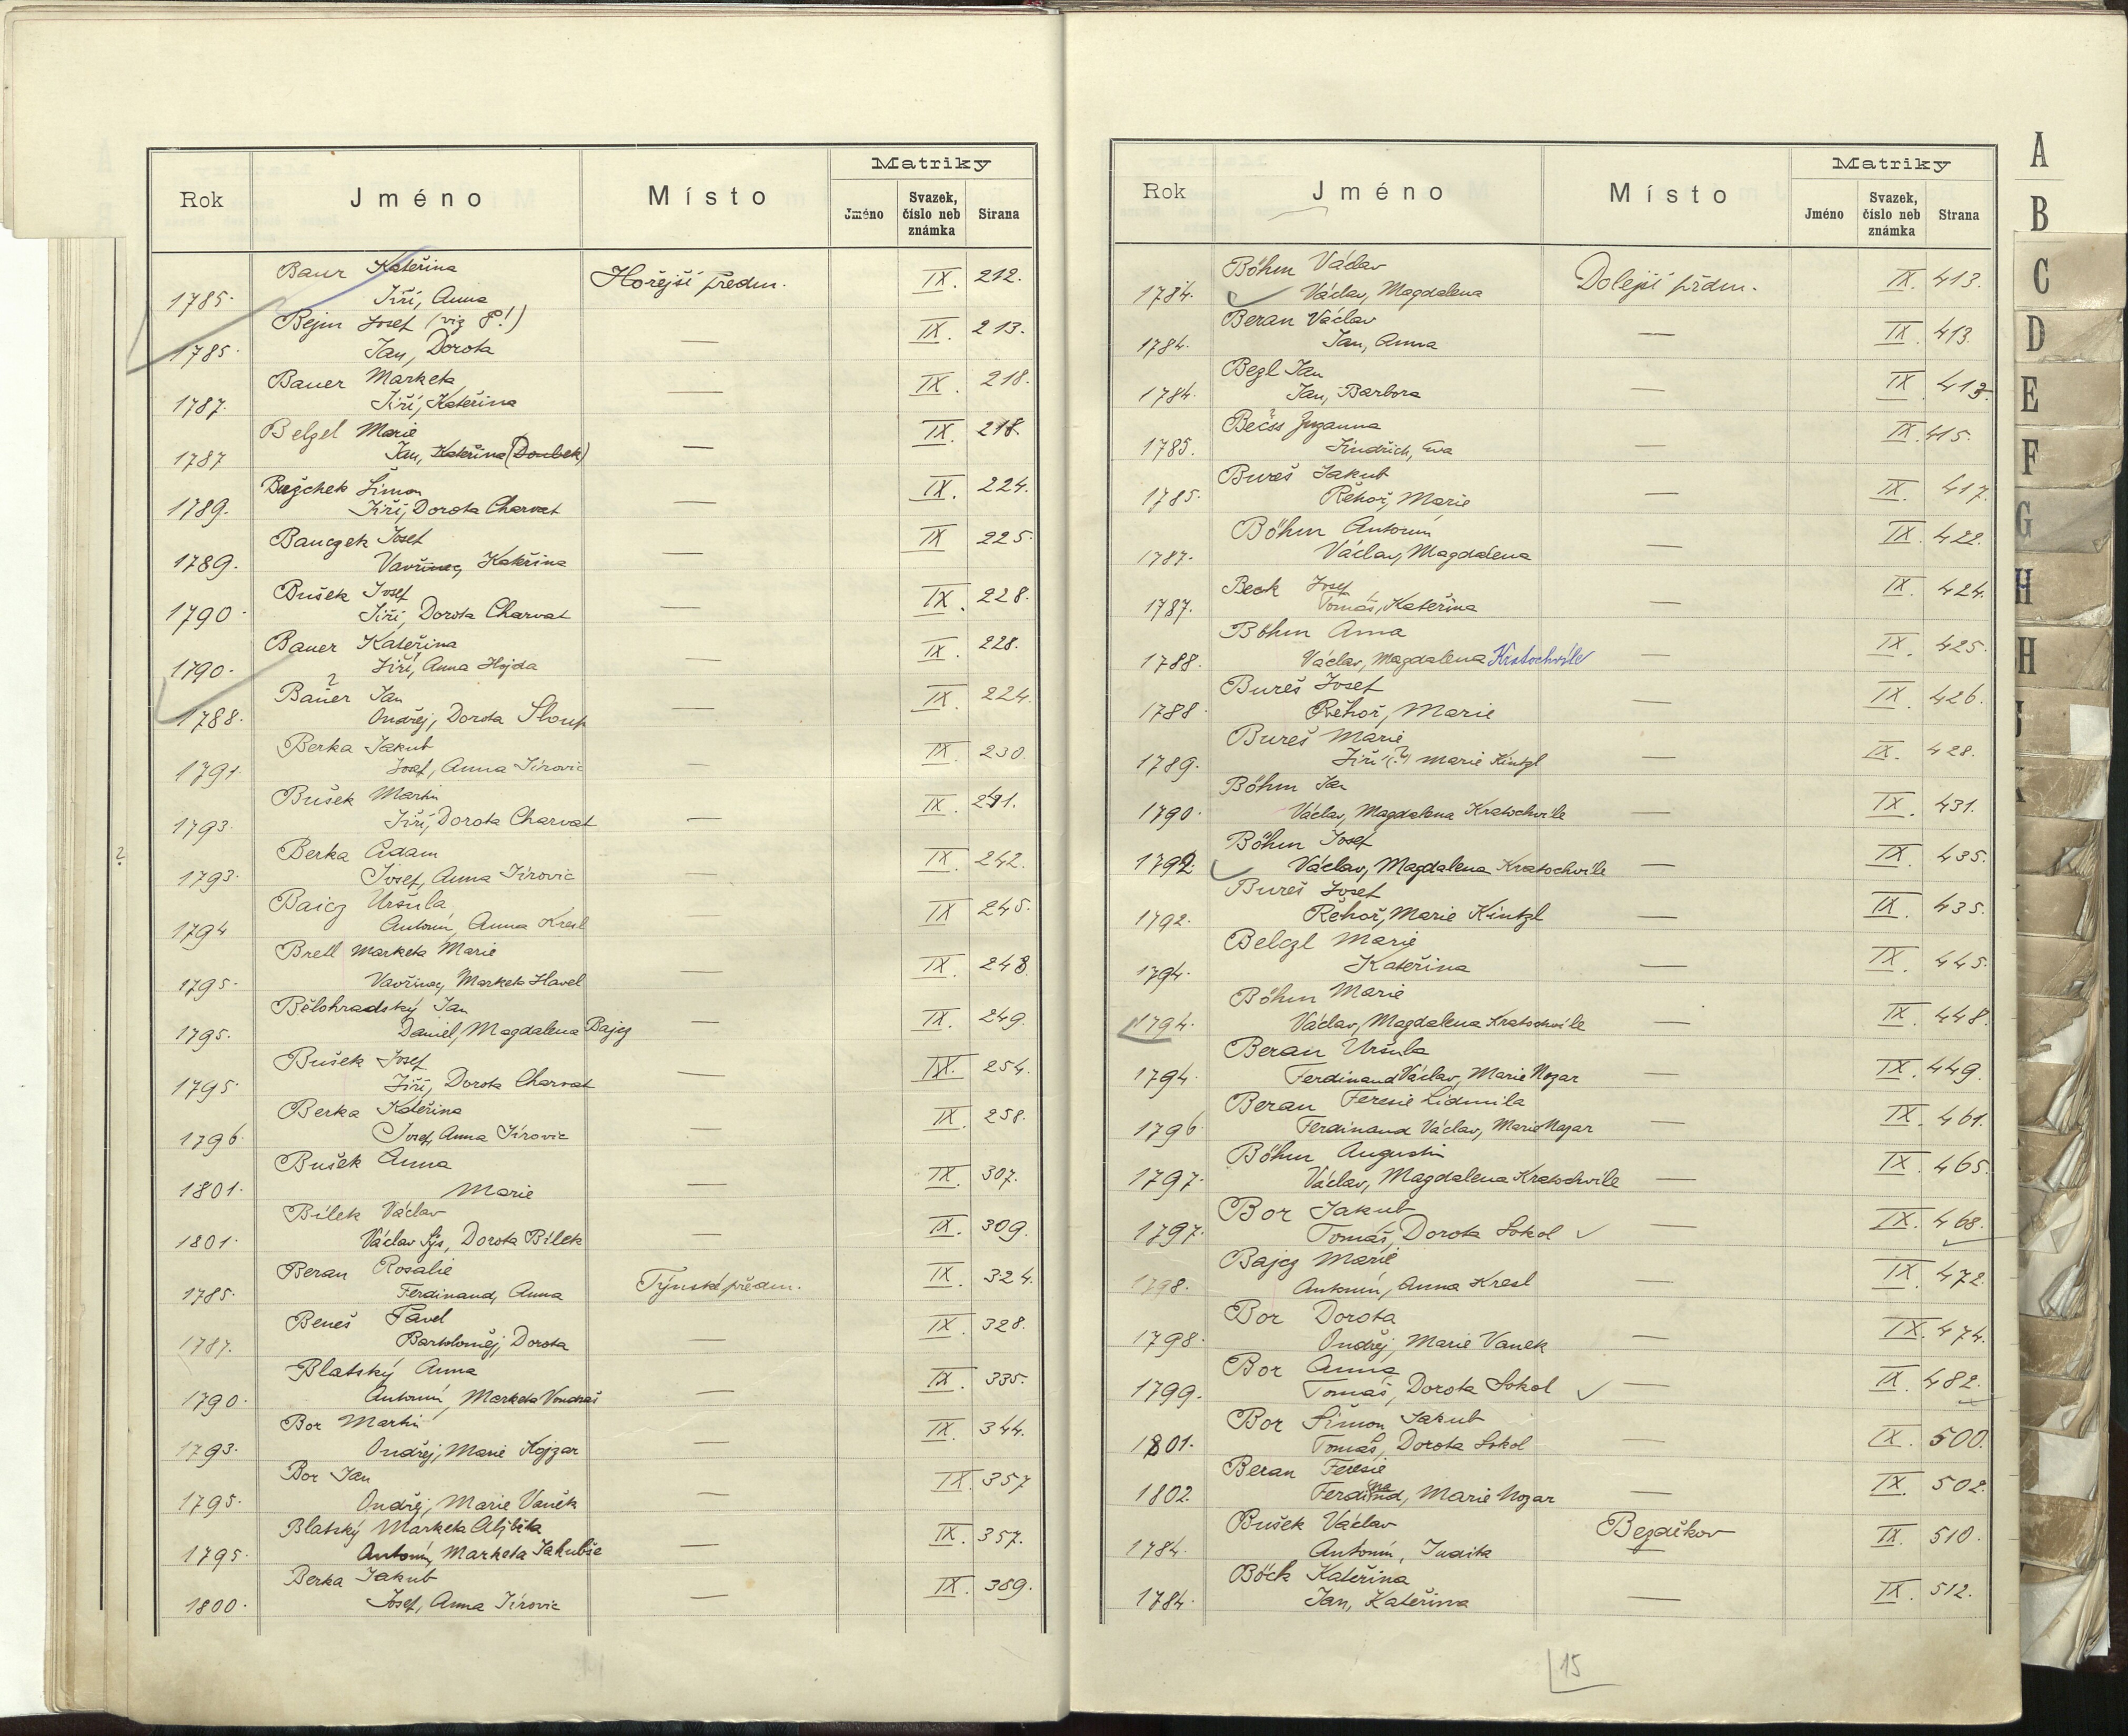 Matriky
Rok Jméno Místo Jméno Svazek, číslo neb známka Strana
Baur Kateřina Hořejší předm. IX. 212.
1785. Jiří, Anna
Bejm Josef (viz P!) — IX. 213.
1785. Jan, Dorota
Bauer Marketa — IX. 218.
1787. Jiří, Kateřina
Belzel Marie — IX. 218.
1787 Jan, Kateřina (Doubek)
Bužchek Šimon — IX. 224.
1789. Jiří, Dorota Charvat
Bauczek Josef — IX 225.
1789. Vavřinec, Kateřina
Bušek Josef — IX. 228.
1790. Jiří, Dorota Charvat
Bauer Kateřina — IX. 228.
1790. Jiří, Anna Hojda
Bauer ? Jan — IX. 224.
1788. Ondřej, Dorota Sloup
Berka Jakub — IX. 230.
1791. Josef, Anna Jírovic
Bušek Martin — IX. 241.
1793. Jiří, Dorota Charvat
Berka Adam — IX. 242.
1793. Josef, Anna Jírovic
Baicz Uršula — IX 245.
1794 Antonín, Anna Kresl
Bretl Marketa Marie — IX. 248.
1795. Vavřinec, Marketa Havel
Bělohradský Jan — IX. 249.
1795. Daniel, Magdalena Bajcz
Bušek Josef — IX. 254.
1795. Jiří, Dorota Charvat
Berka Kateřina — IX. 258.
1796. Josef, Anna Jírovic
Bušek Anna — IX. 307.
1801. Marie
Bílek Václav — IX. 309.
1801. Václav Sýs, Dorota Bílek
Beran Rosalie Týnské předm. IX. 324.
1785. Ferdinand, Anna
Beneš Pavel — IX. 328.
1787. Bartoloměj, Dorota
Blatský Anna — IX. 335.
1790. Antonín, Marketa Vondraš
Bor Martin — IX. 344.
1793. Ondřej, Marie Kojzar
Bor Jan — IX. 357
1795. Ondřej, Marie Vaněk
Blatský Marketa Alžběta — IX. 357.
1795. Antonín, Marketa Jakubše
Berka Jakub — IX. 389.
1800. Josef, Anna Jírovic
Matriky
Rok Jméno Místo Jméno Svazek, číslo neb známka Strana
Böhm Václav Dolejší předm. IX. 413.
1784. Václav, Magdalena
Beran Václav — IX. 413.
1784. Jan, Anna
Begl Jan — IX. 413.
1784. Jan, Barbora
Bečss Zuzanna — IX. 415.
1785. Jindřich, Eva
Bureš Jakub — IX. 417.
1785. Řehoř, Marie
Böhm Antonín — IX. 422.
1787. Václav, Magdalena
Beck Josef — IX. 424.
1787. Tomáš, Kateřina
Böhm Anna — IX. 425.
1788. Václav, Magdalena Kratochvíle
Bureš Josef — IX. 426.
1788. Řehoř, Marie
Bureš Marie — IX. 428.
1789. Jiří (?) Marie Kintzl
Böhm Jan — IX. 431.
1790. Václav, Magdalena Kratochvíle
Böhm Josef — IX. 435.
1792. Václav, Magdalena Kratochvíle
Bureš Josef — IX. 435.
1792. Řehoř, Marie Kintzl
Belczl Marie — IX 445.
1794. Kateřina
Böhm Marie — IX. 448.
1794. Václav, Magdalena Kratochvíle
Beran Uršula — IX. 449.
1794. Ferdinand Václav, Marie Nozar
Beran Teresie Lidmila — IX. 461.
1796. Ferdinand Václav, Marie Nozar
Böhm Augustin — IX. 465.
1797. Václav, Magdalena Kratochvíle
Bor Jakub — IX. 468.
1797. Tomáš, Dorota Sokol
Bajcz Marie — IX. 472.
1798. Antonín, Anna Kresl
Bor Dorota — IX. 474.
1798. Ondřej, Marie Vanek
Bor Anna — IX. 482.
1799. Tomáš, Dorota Sokol
Bor Šimon Jakub — IX. 500.
1801. Tomáš, Dorota Sokol
Beran Teresie — IX. 502.
1802. Ferdinand, Marie Nozar
Bušek Václav Bezděkov IX. 510.
1784. Antonín, Judita
Böck Kateřina — IX. 512.
1784. Jan, Kateřina
15
A
B
C
D
E
F
G
H
H
J
K